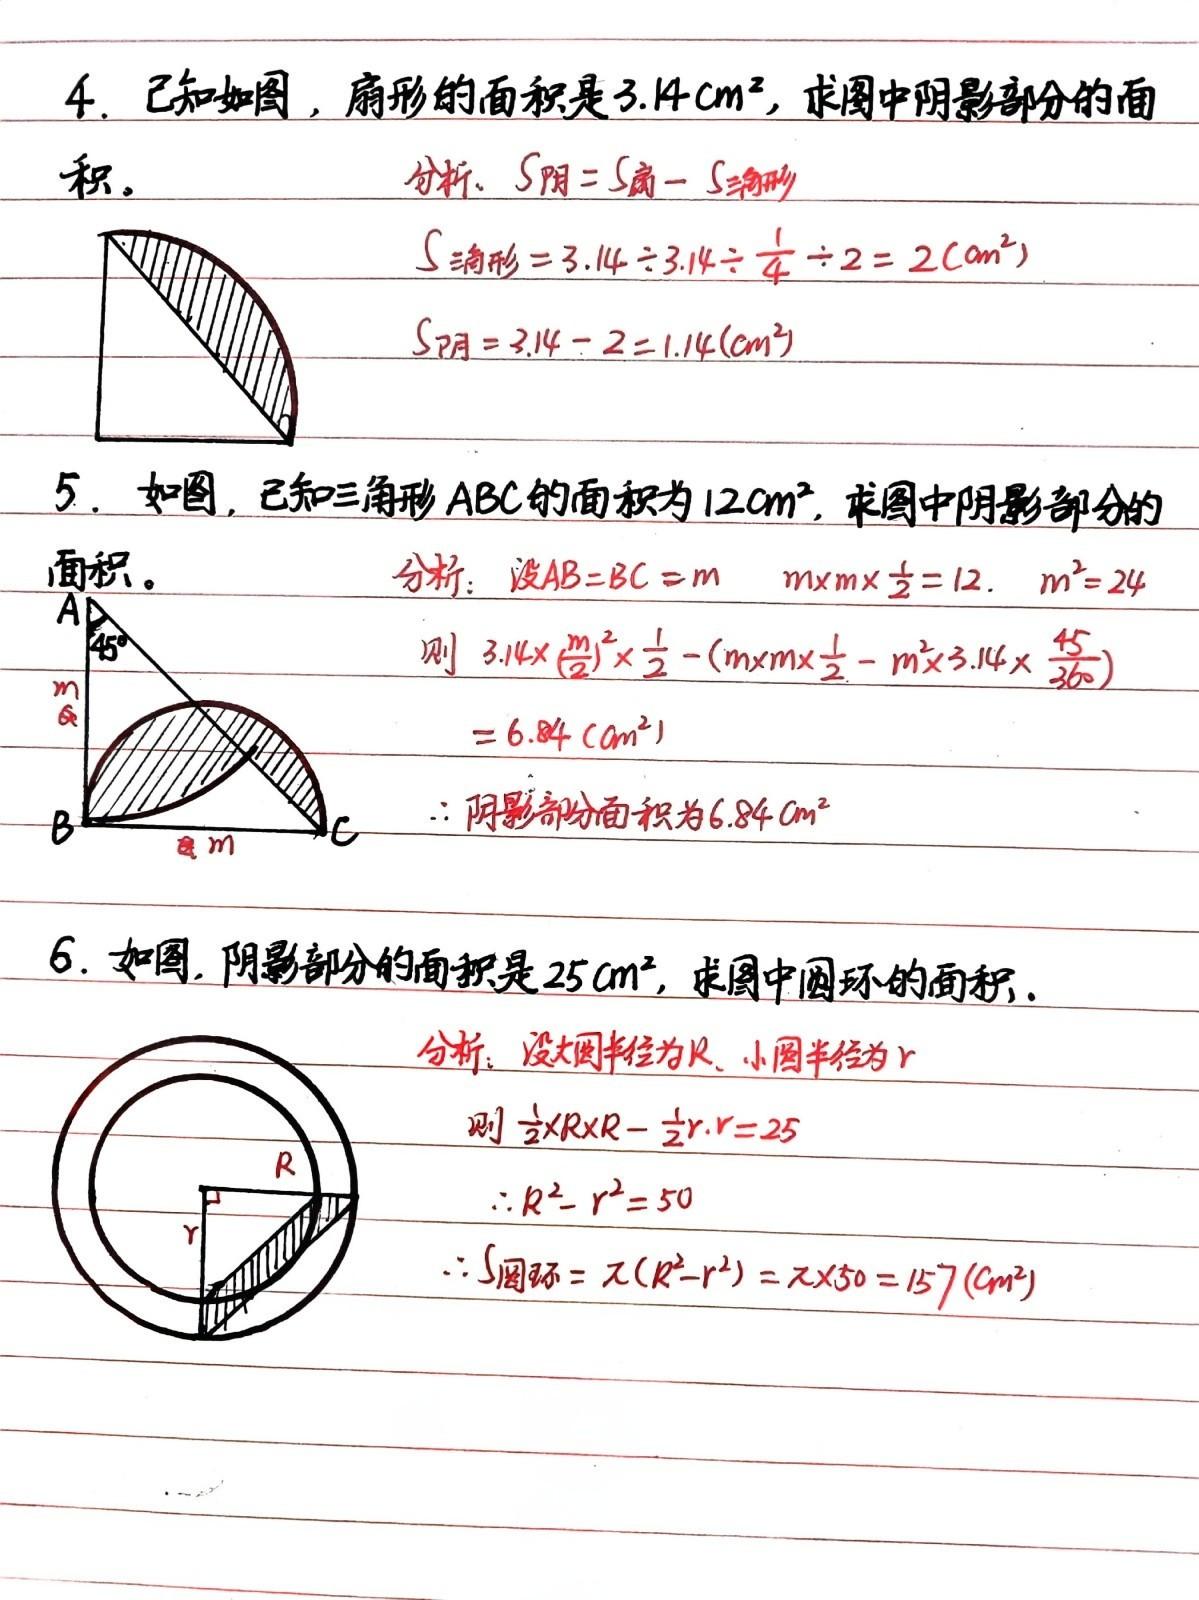 4. 已知如图，扇形的面积是3.14cm²，求图中阴影部分的面
积。
分析：S阴=S扇－S三角形
S三角形=3.14÷3.14÷1/4÷2=2(cm²)
S阴=3.14－2=1.14(cm²)
5. 如图，已知三角形ABC的面积为12cm²，求图中阴影部分的
面积。
分析：设AB=BC=m  m×m×1/2=12.  m²=24
A
45°
则 3.14×(m/2)²×1/2－(m×m×1/2－m²×3.14×45/360)
m
=6.84(cm²)
∴阴影部分面积为6.84cm²
B
C
m
6. 如图，阴影部分的面积是25cm²，求图中圆环的面积.
分析：设大圆半径为R、小圆半径为r
则 1/2×R×R－1/2r.r=25
R
∴R²－r²=50
r
∴S圆环=π(R²－r²)=π×50=157(cm²)